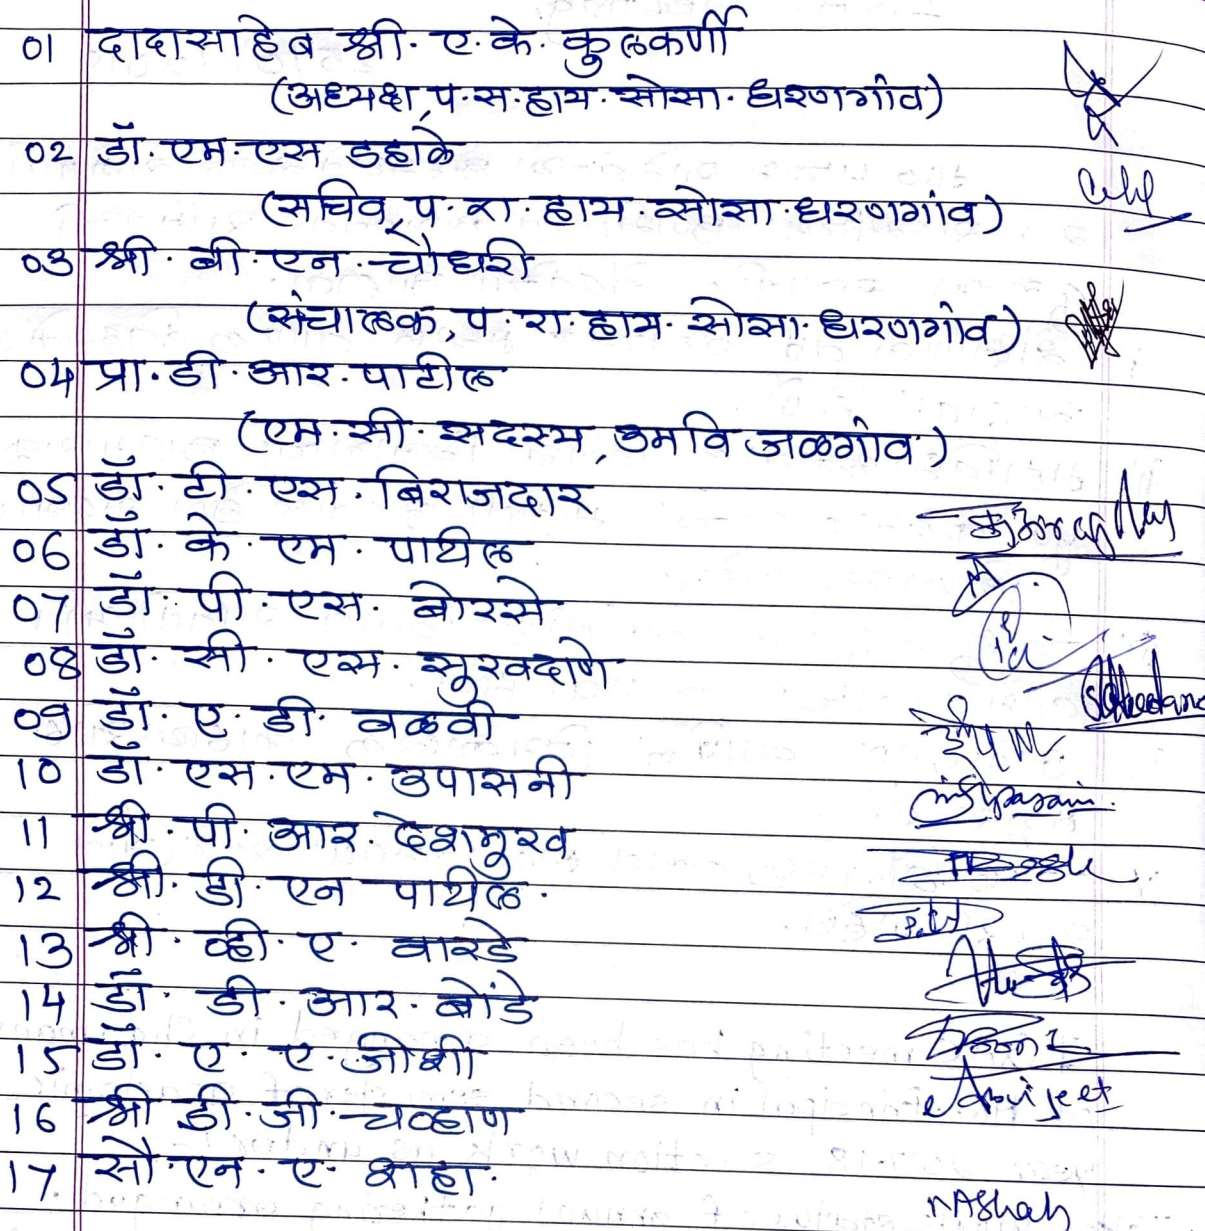 01 दादासाहेब श्री. ए. के. कुलकर्णी
(अध्यक्ष, प. रा. हाय. सोसा. धरणगांव)
02 डॉ. एम. एस. डहाके
(सचिव, प. रा. हाय. सोसा. धरणगांव)
03 श्री. बी. एन. चौधरी
(संचालक, प. रा. हाय. सोसा. धरणगांव)
04 प्रा. डी. आर. पाटील
(एम. सी. सदस्य, उमवि जळगांव)
05 डॉ. टी. एस. बिराजदार
06 डॉ. के. एम. पाटील
07 डॉ. पी. एस. बोरसे
08 डॉ. सी. एस. सुखदाणे
09 डॉ. ए. डी. वळवी
10 डॉ. एस. एम. उपासनी
11 श्री. पी. आर. देशमुख
12 श्री. डी. एन पाटील.
13 श्री. व्ही. ए. वारडे
14 डॉ. डी. आर. बोंडे
15 डॉ. ए. ए. जोशी
16 श्री डी. जी. चव्हाण
17 सौ. एन. ए. शहा.
NAShah